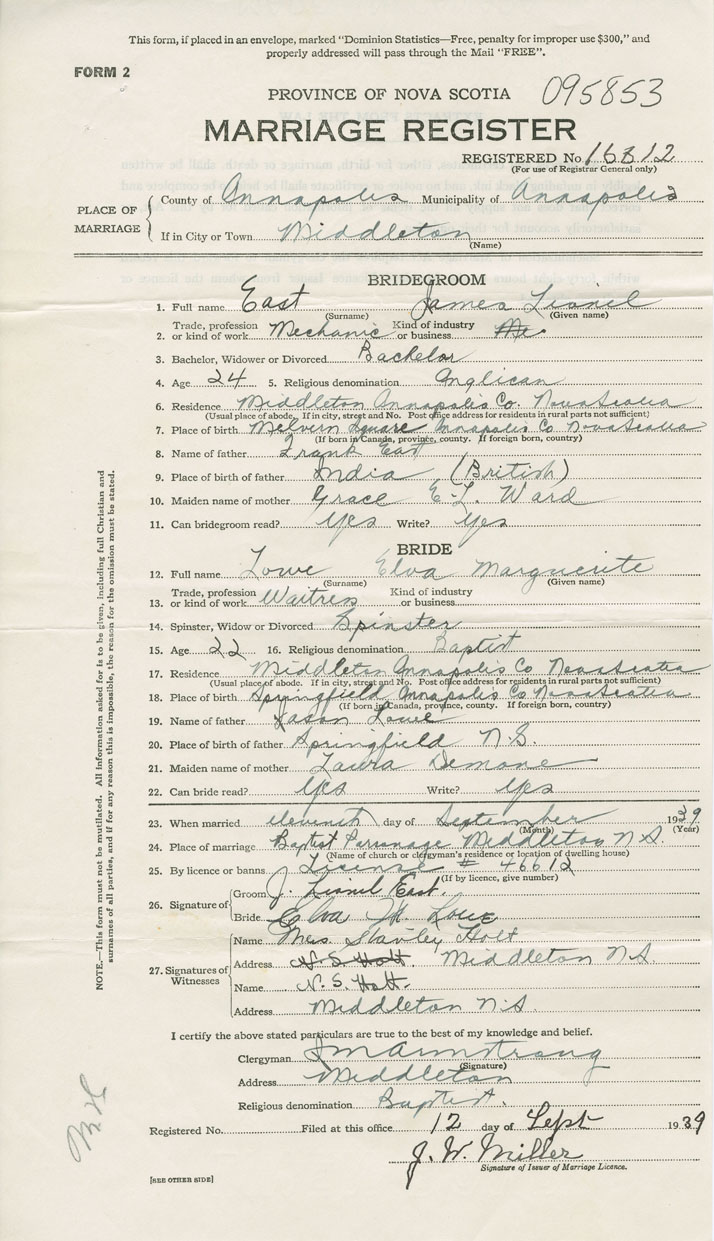 This form, if placed in an envelope, marked "Dominion Statistics—Free, penalty for improper use $300," and
properly addressed will pass through the Mail "FREE".
FORM 2
PROVINCE OF NOVA SCOTIA 095853
MARRIAGE REGISTER
REGISTERED No. 16812
(For use of Registrar General only)
PLACE OF MARRIAGE
County of Annapolis Municipality of Annapolis
If in City or Town Middleton
(Name)
BRIDEGROOM
1. Full name East James Lionel
(Surname) (Given name)
2. Trade, profession or kind of work Mechanic Kind of industry or business
3. Bachelor, Widower or Divorced Bachelor
4. Age 24 5. Religious denomination Anglican
6. Residence Middleton Annapolis Co. Nova Scotia
(Usual place of abode. If in city, street and No. Post office address for residents in rural parts not sufficient)
7. Place of birth Melvern Square Annapolis Co Nova Scotia
(If born in Canada, province, county. If foreign born, country)
8. Name of father Frank East
9. Place of birth of father India (British)
10. Maiden name of mother Grace E. L. Ward
11. Can bridegroom read? Yes Write? Yes
BRIDE
12. Full name Lowe Elva Marguerite
(Surname) (Given name)
13. Trade, profession or kind of work Waitress Kind of industry or business
14. Spinster, Widow or Divorced Spinster
15. Age 22 16. Religious denomination Baptist
17. Residence Middleton Annapolis Co Nova Scotia
(Usual place of abode. If in city, street and No. Post office address for residents in rural parts not sufficient)
18. Place of birth Springfield Annapolis Co Nova Scotia
(If born in Canada, province, county. If foreign born, country)
19. Name of father Jason Lowe
20. Place of birth of father Springfield N.S.
21. Maiden name of mother Laura Demone
22. Can bride read? Yes Write? Yes
23. When married eleventh day of September 1939
(Month) (Year)
24. Place of marriage Baptist Parsonage Middleton N.S.
(Name of church or clergyman's residence or location of dwelling house)
25. By licence or banns License # 46612
(If by licence, give number)
26. Signature of
Groom J. Lionel East.
Bride Elva M. Lowe
27. Signatures of Witnesses
Name Mrs Stanley Holt
Address Middleton N.S.
Name N. S. Holt
Address Middleton N.S.
I certify the above stated particulars are true to the best of my knowledge and belief.
Clergyman Armstrong
(Signature)
Address Middleton
Religious denomination Baptist.
Registered No. Filed at this office 12 day of Sept 1939
J. W. Miller
Signature of Issuer of Marriage Licence.
[SEE OTHER SIDE]
NOTE.—This form must not be mutilated. All information asked for is to be given, including full Christian and
surnames of all parties, and if for any reason this is impossible, the reason for the omission must be stated.